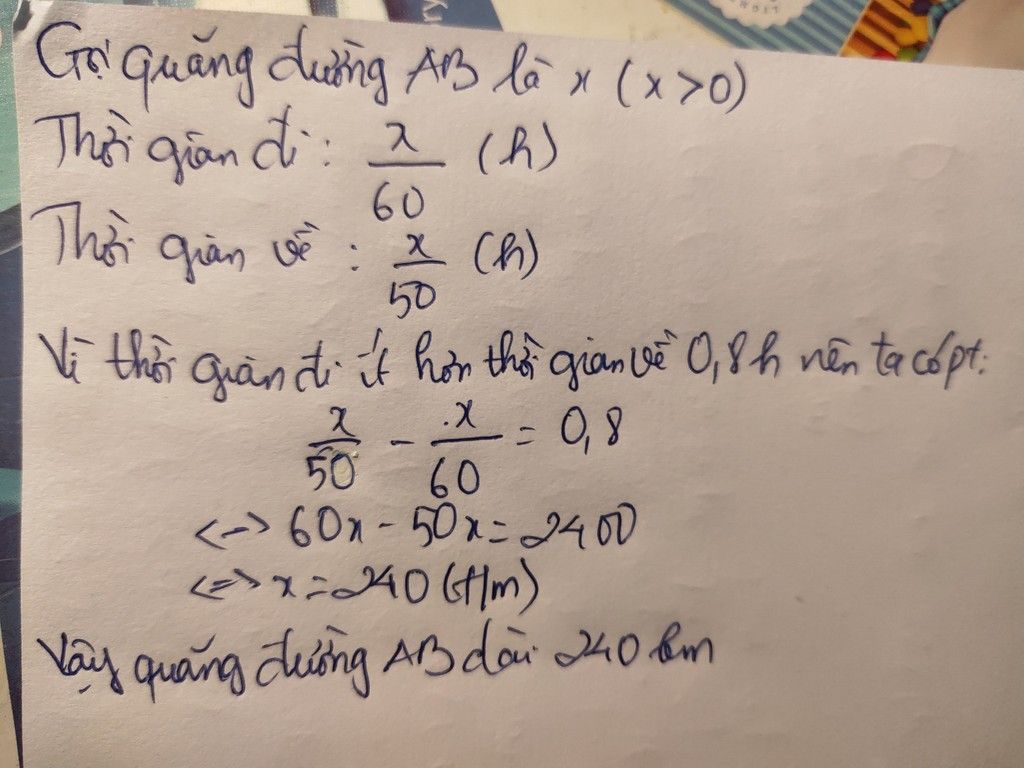 Gọi quãng đường AB là x (x>0)
Thời gian đi: x/60 (h)
Thời gian về: x/50 (h)
Vì thời gian đi ít hơn thời gian về 0,8h nên ta có pt:
x/50 - x/60 = 0,8
<=> 60x - 50x = 2400
<=> x = 240 (t/m)
Vậy quãng đường AB dài 240 km